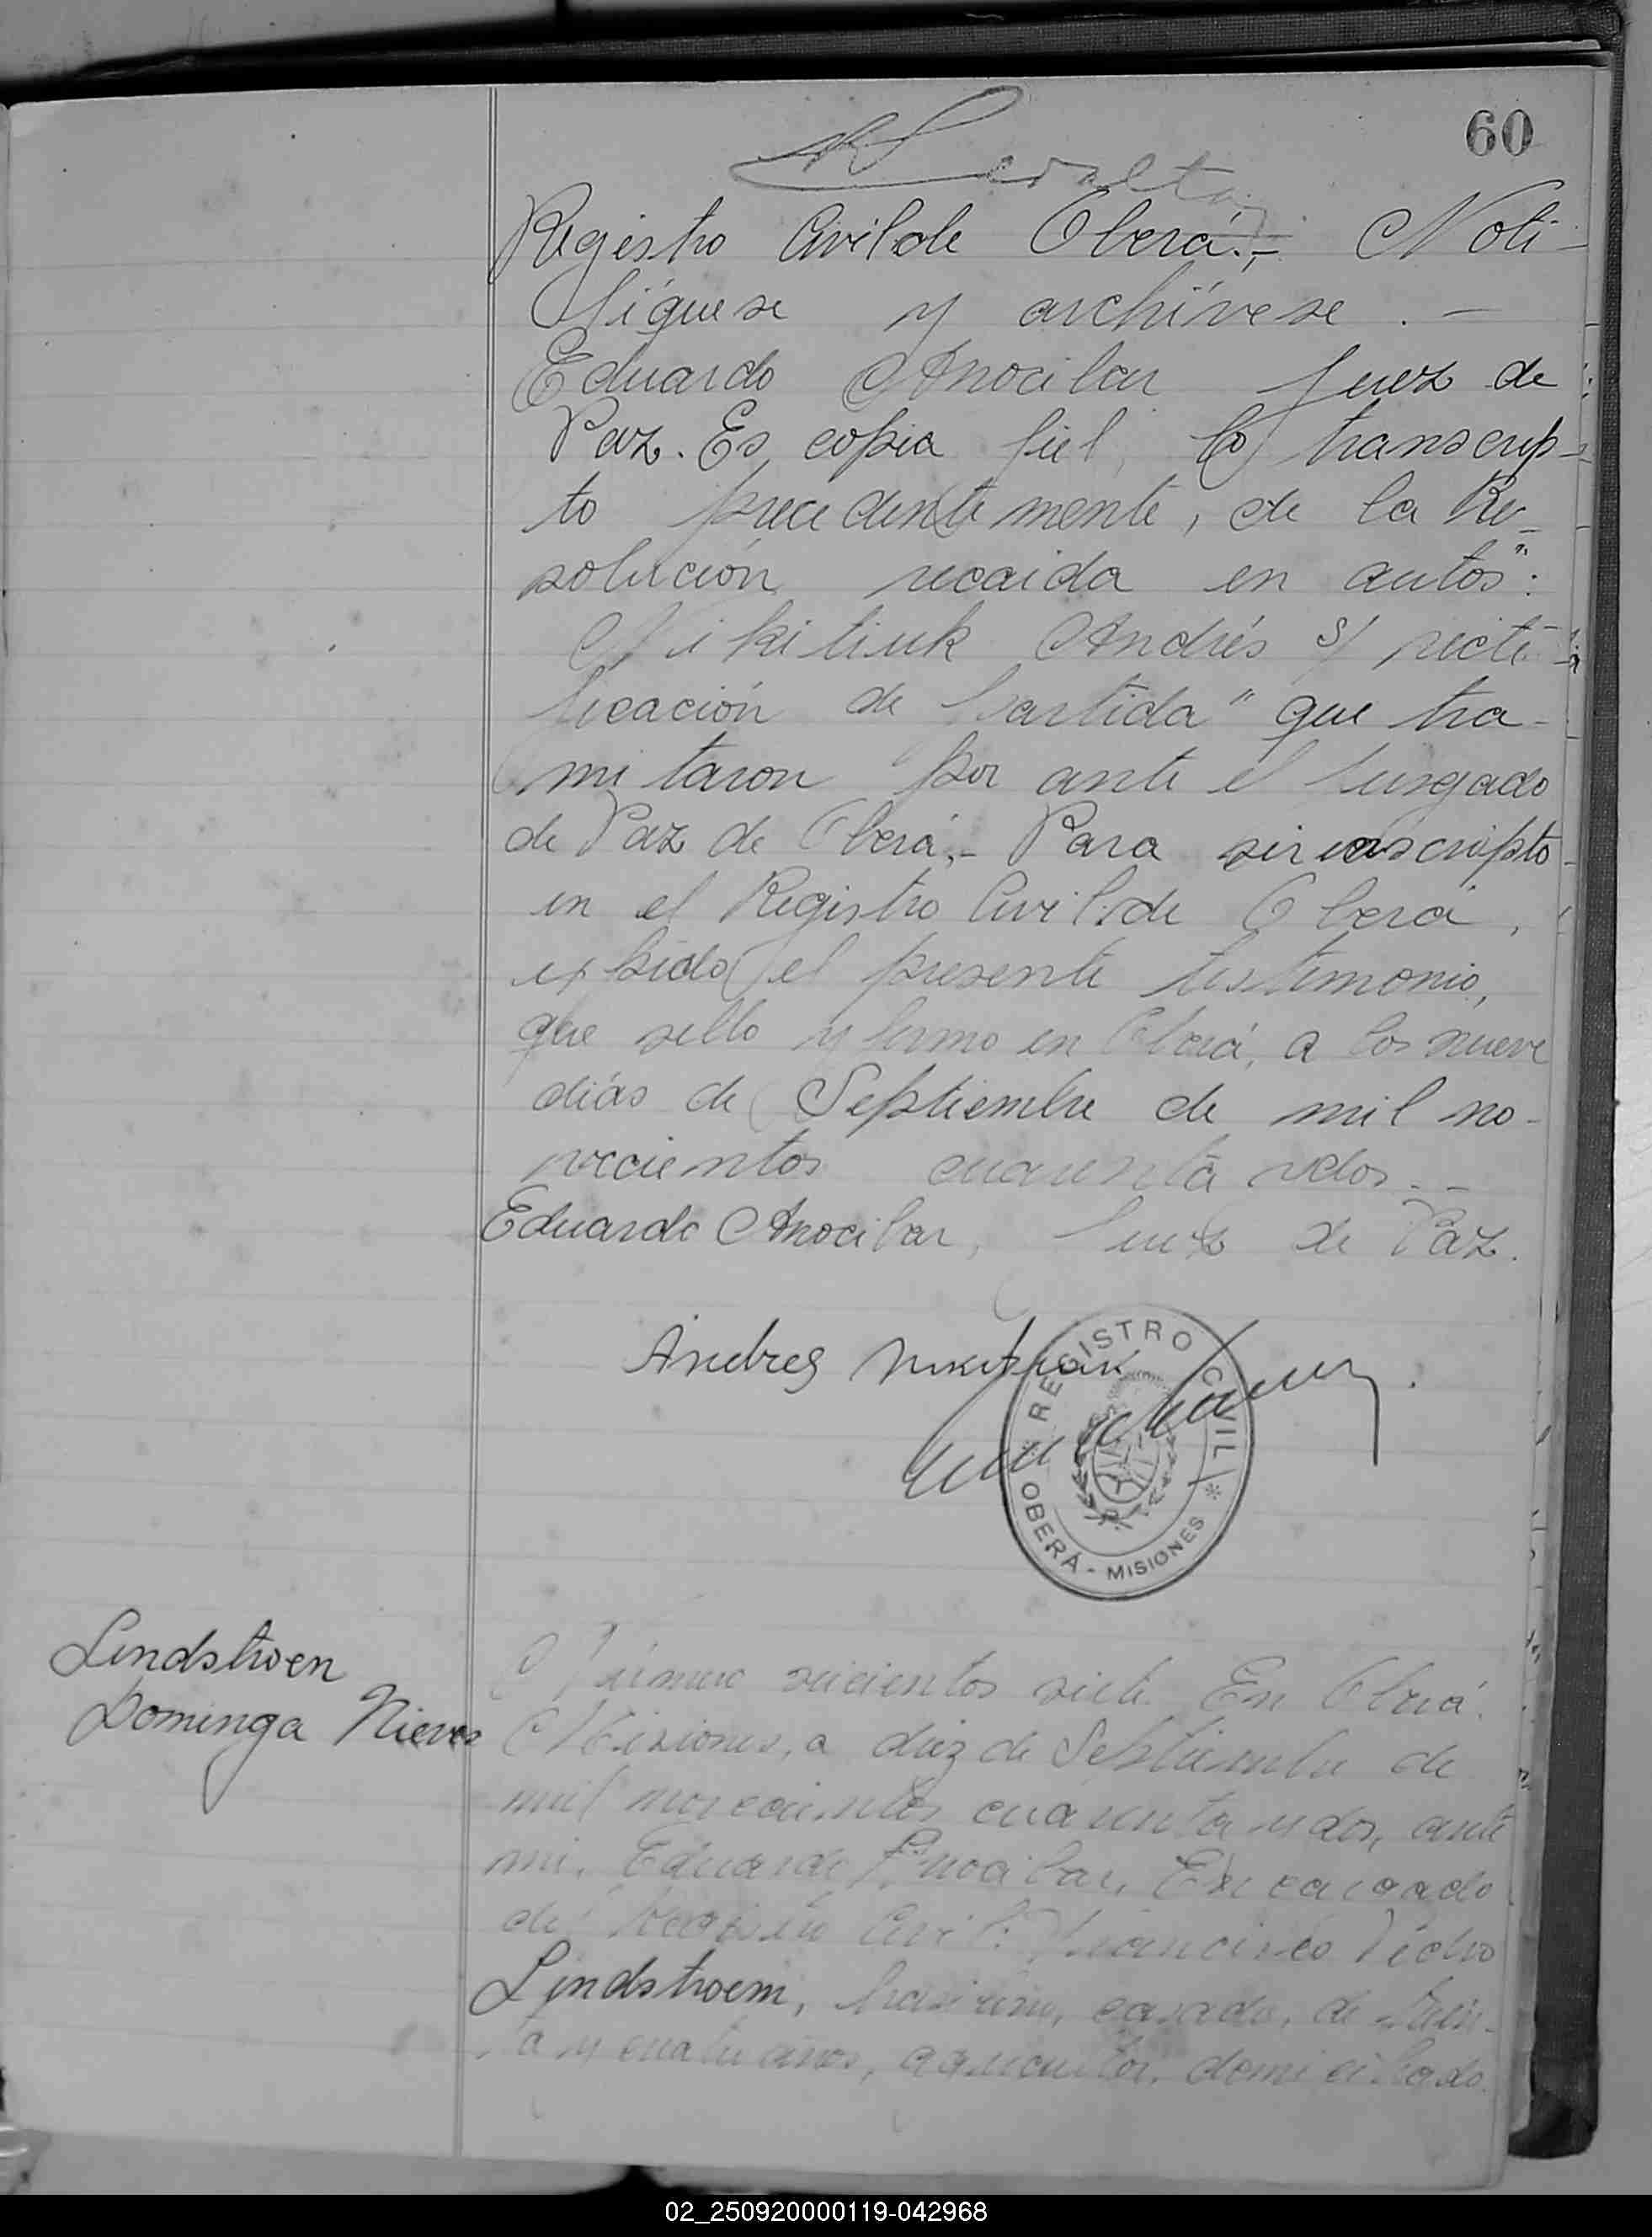 60
Peralta
Registro Civil de Oberá.- Noti-
fíquese y archívese. -
Eduardo Anocibar Juez de
Paz. Es copia fiel, lo transcrip-
to precedentemente, de la Re-
solución recaida en autos":
Nikitiuk Andrés s/ recti-
ficación de partida" que tra-
mitaron por ante el Juzgado
de Paz de Oberá.- Para ser inscripto
en el Registro Civil de Oberá,
expido el presente testimonio,
que sello y firmo en Oberá, a los nueve
dias de Septiembre de mil no-
vecientos cuarenta y dos.-
Eduardo Anocibar, Juez de Paz.
Andres
REGISTRO CIVIL
OBERÁ - MISIONES
Lindstroen
Dominga Nieves
Número seicientos siete. En Oberá.
Misiones, a diez de Septiembre de
mil novecientos cuarenta y dos, ante
mi, Eduardo Anocibar, Encargado
del Registro Civil: Francisco Pedro
Lindstroem, brasilero, casado, de trein-
ta y cuatro años, agricultor, domiciliado
02_250920000119-042968